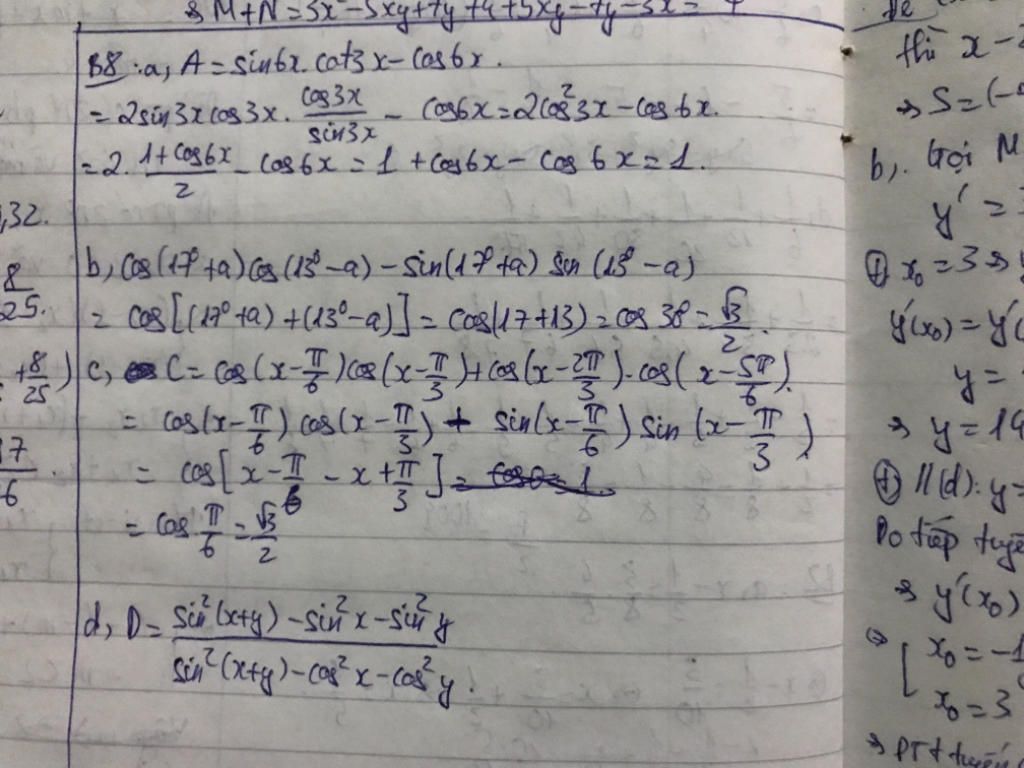 ⇒ M+N = 3x - 5xy + 7y + 4 + 5xy - 7y - 3x =
B8: a, A = sin6x. cot3x - cos6x.
= 2sin3x cos3x. cos3x/sin3x - cos6x = 2cos²3x - cos6x.
= 2. (1+cos6x)/2 - cos6x = 1 + cos6x - cos6x = 1.
b, cos(17°+a)cos(13°-a) - sin(17°+a) sin(13°-a)
= cos[(17°+a)+(13°-a)] = cos(17+13) = cos 30 = √3/2.
c, C = cos(x-π/6)cos(x-π/3)+cos(x-2π/3).cos(x-5π/6).
= cos(x-π/6) cos(x-π/3) + sin(x-π/6) sin(x-π/3)
= cos[x-π/6 - x+π/3] = cos0 = 1
= cos π/6 = √3/2
d, D = (sin²(x+y) - sin²x - sin²y)/(sin²(x+y) - cos²x - cos²y).
,32.
8
25.
+8/25)
17
6
thì x -
⇒ S = (-
b,. Gọi M
y' =
+ x₀ = 3 ⇒
y'(x₀) = y'(
y =
⇒ y = 14
+ //(d): y =
Do tiếp tuyế
⇒ y'(x₀)
⇔ [ x₀ = -1
x₀ = 3
⇒ PT t tuyến